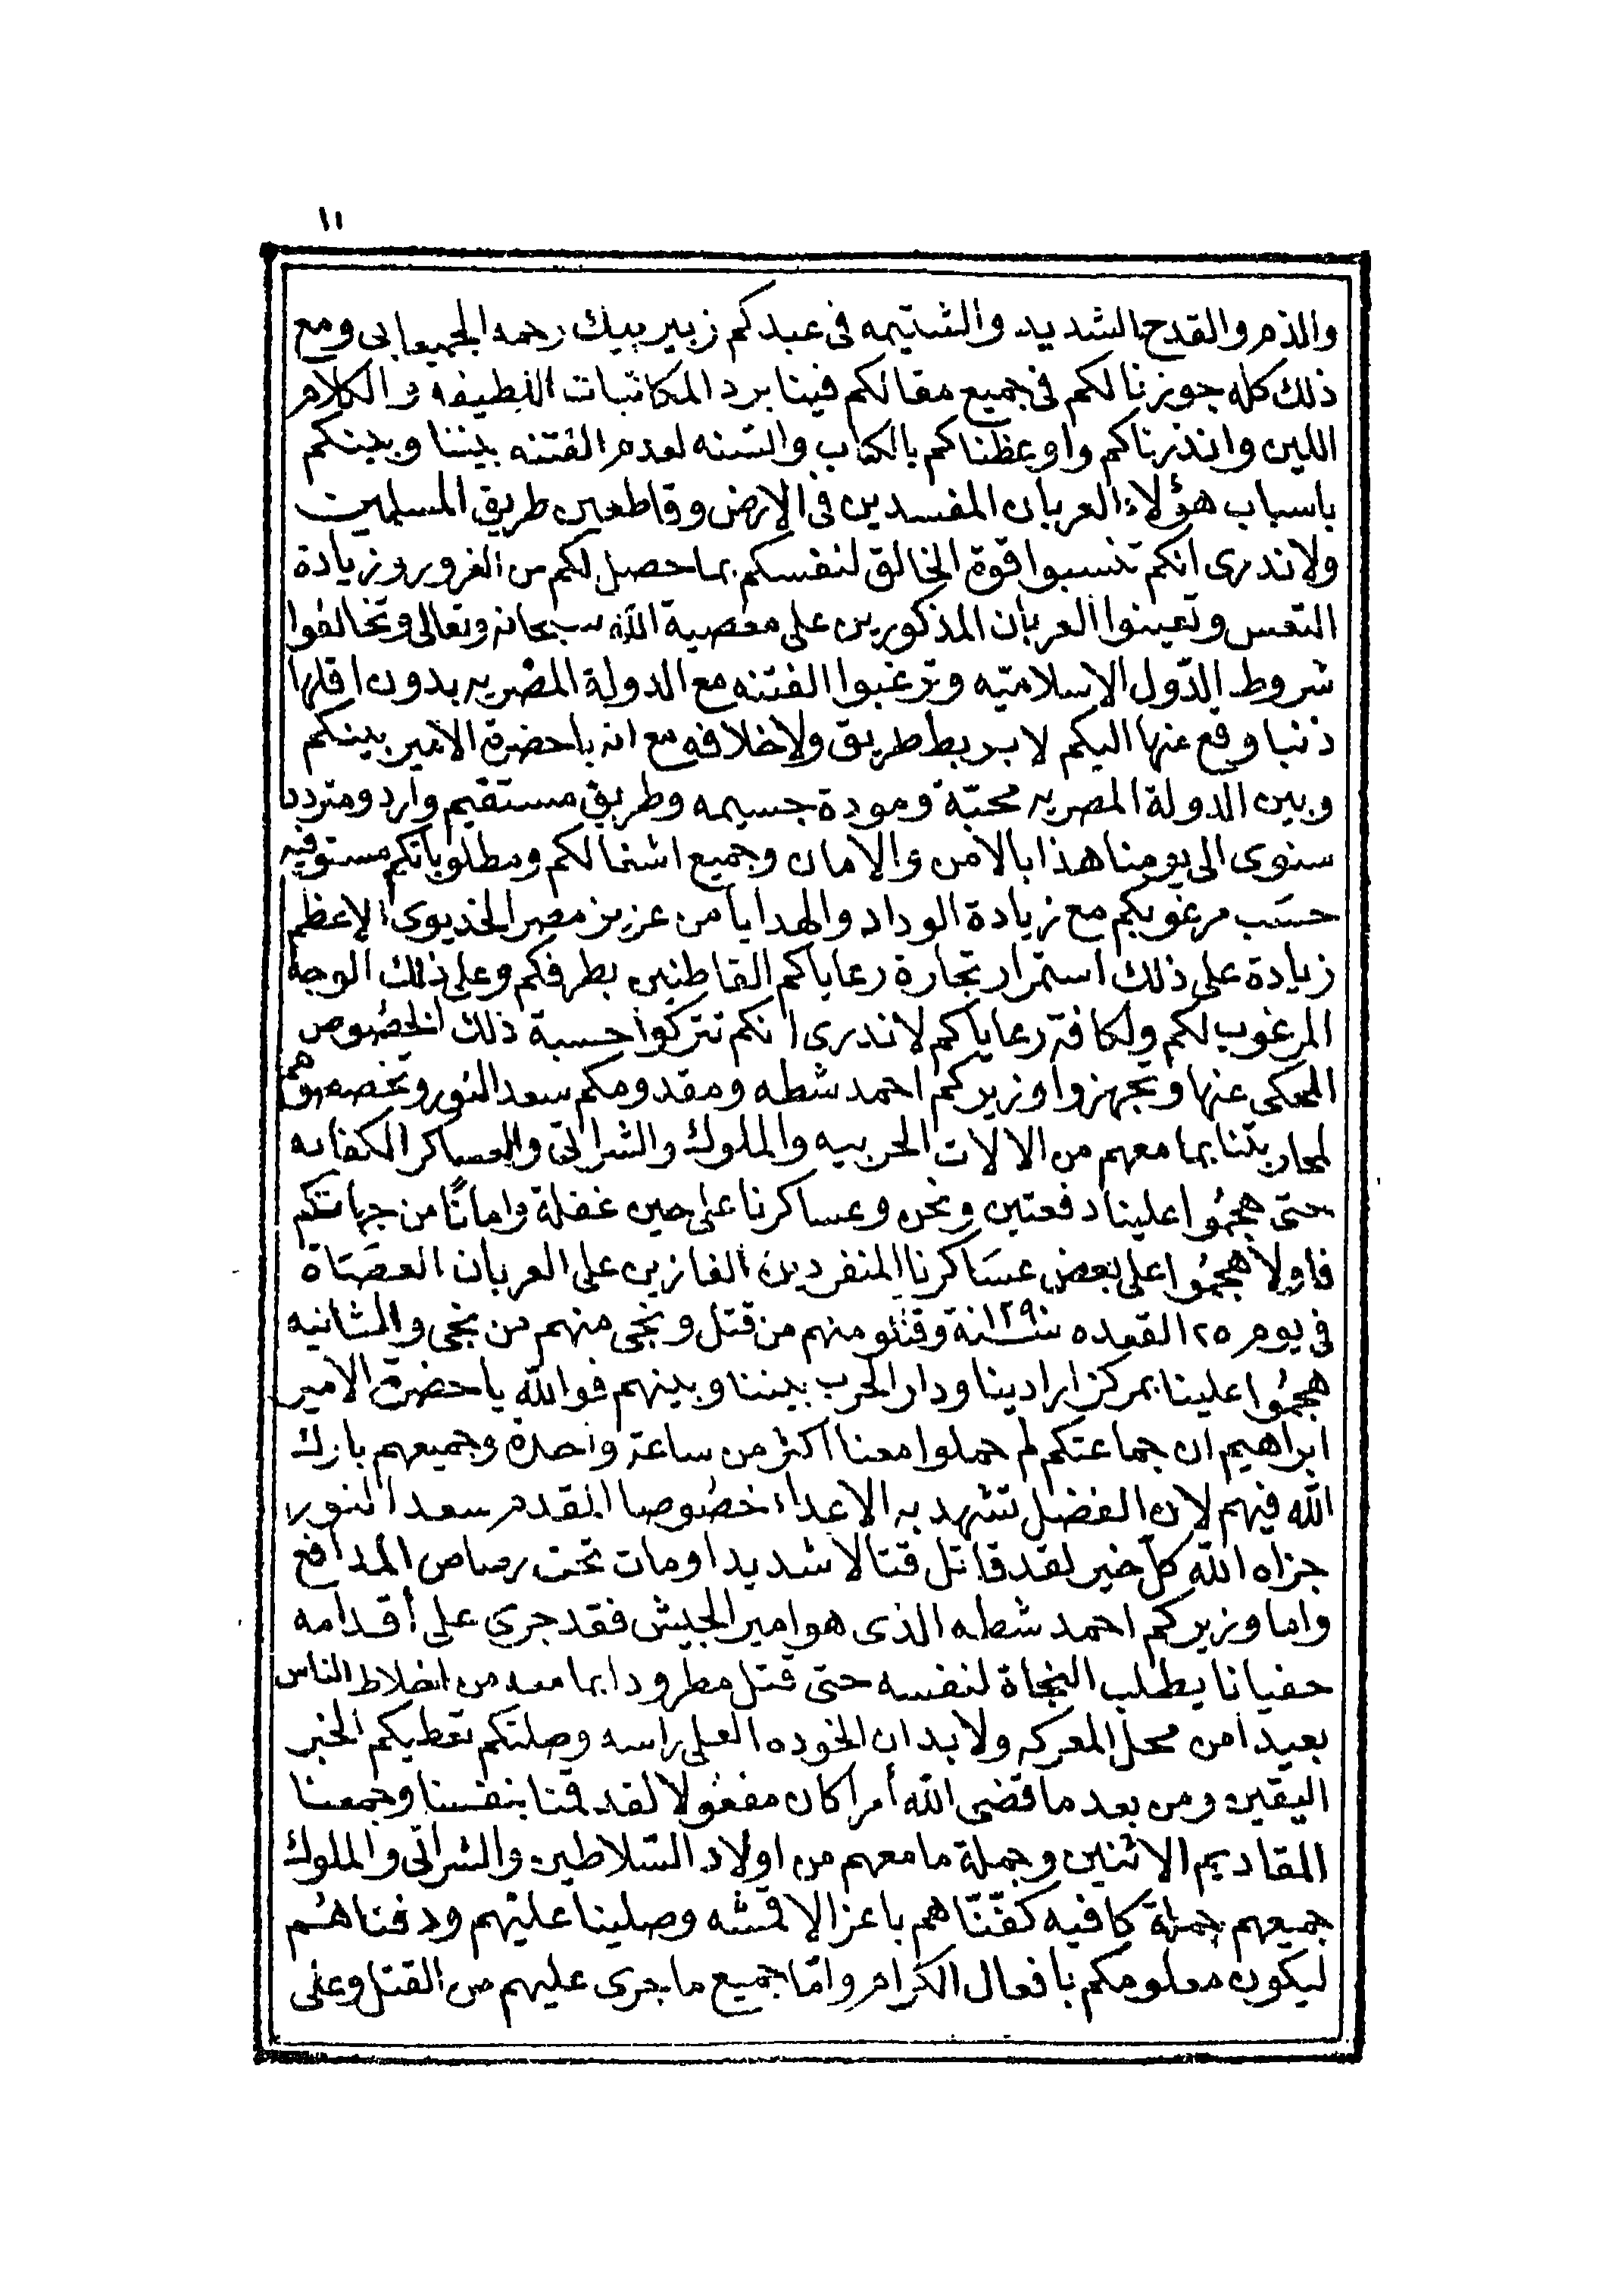 ١١
والذم والقدح الشديد والشتيمه فى عبدكم زبير بيك رحمه الجميعابى ومع
ذلك كله جوزنا لكم فى جميع مقالكم فينا برد المكاتبات اللطيفه والكلام
اللين وانذرناكم واوعظناكم بالكتاب والسنه لعدم الفتنه بيننا وبينكم
باسباب هؤلاء العربان المفسدين فى الارض وقاطعين طريق المسلمين
ولا ندرى انكم تنسبوا قوة الخالق لنفسكم بما حصل لكم من الغرور وزيادة
النفس وتعينوا العربان المذكورين على معصية الله سبحانه وتعالى وتخالفوا
شروط الدول الاسلاميه وترغبوا الفتنه مع الدولة المصريه بدون اقلها
ذنبا وقع عنها اليكم لا بربط طريق ولا خلافه مع انه ياحضرة الامير بينكم
وبين الدولة المصريه محبّة ومودة جسيمه وطريق مستقيم وارد ومتردد
سنوى الى يومنا هذا بالامن والامان وجميع اشغالكم ومطلوباتكم مستوفيه
حسب مرغوبكم مع زيادة الوداد والهدايا من عزيز مصر الخديوى الاعظم
زيادة على ذلك استمرار تجارة رعاياكم القاطنين بطرفكم وعلى ذلك الوجه
المرغوب لكم ولكافة رعاياكم لا ندرى انكم تتركوا حسبة ذلك الخصوص
المحكى عنها وتجهزوا وزيركم احمد شطه ومقدومكم سعد النور وتخصصوهم
لمحاربتنا بما معهم من الالات الحربيه والملوك والشراتى والعساكر الكفايه
حتى هجمُوا علينا دفعتين ونحن وعساكرنا على حين غفلة وامانًا من جهاتكم
فاولا هجمُوا على بعض عسَاكرنا المنفردين الغازين على العربان العصَاة
فى يوم ٢٥ القعده سنة ١٢٩٠ وقتلو منهم من قتل ونجى منهم من نجى والثانيه
هجمُوا علينا بمركز ارادينا ودار الحرب بيننا وبينهم فوالله ياحضرة الامير
ابراهيم ان جماعتكم لم حملوا معنا اكثر من ساعة واحدة وجميعهم بارك
الله فيهم لان الفضل تشهد به الاعداء خصُوصا المقدم سعد النور
جزاه الله كلّ خير لقد قاتل قتالا شديدا ومات تحت رصاص المدافع
واما وزيركم احمد شطه الذى هو امير الجيش فقد جرى على أقدامه
حفيانا يطلب النجاة لنفسه حتى قتل مطرودا بما معه من اخلاط الناس
بعيدا من محل المعركه ولا بد ان الخوده العلى راسه وصلتكم تعطيكم الخبر
اليقين ومن بعد ما قضى الله أمرا كان مفعُولا لقد قمنا بنفسنا وجمعنا
المقاديم الاثنين وجملة ما معهم من اولاد السّلاطين والشراتى والملوك
جميعهم جملة كافيه كفّنّاهم باعز الاقمشه وصلينا عليهم ودفناهُم
ليكون معلومكم بافعال الكرام وامّا جميع ما جرى عليهم من القتل وعلى